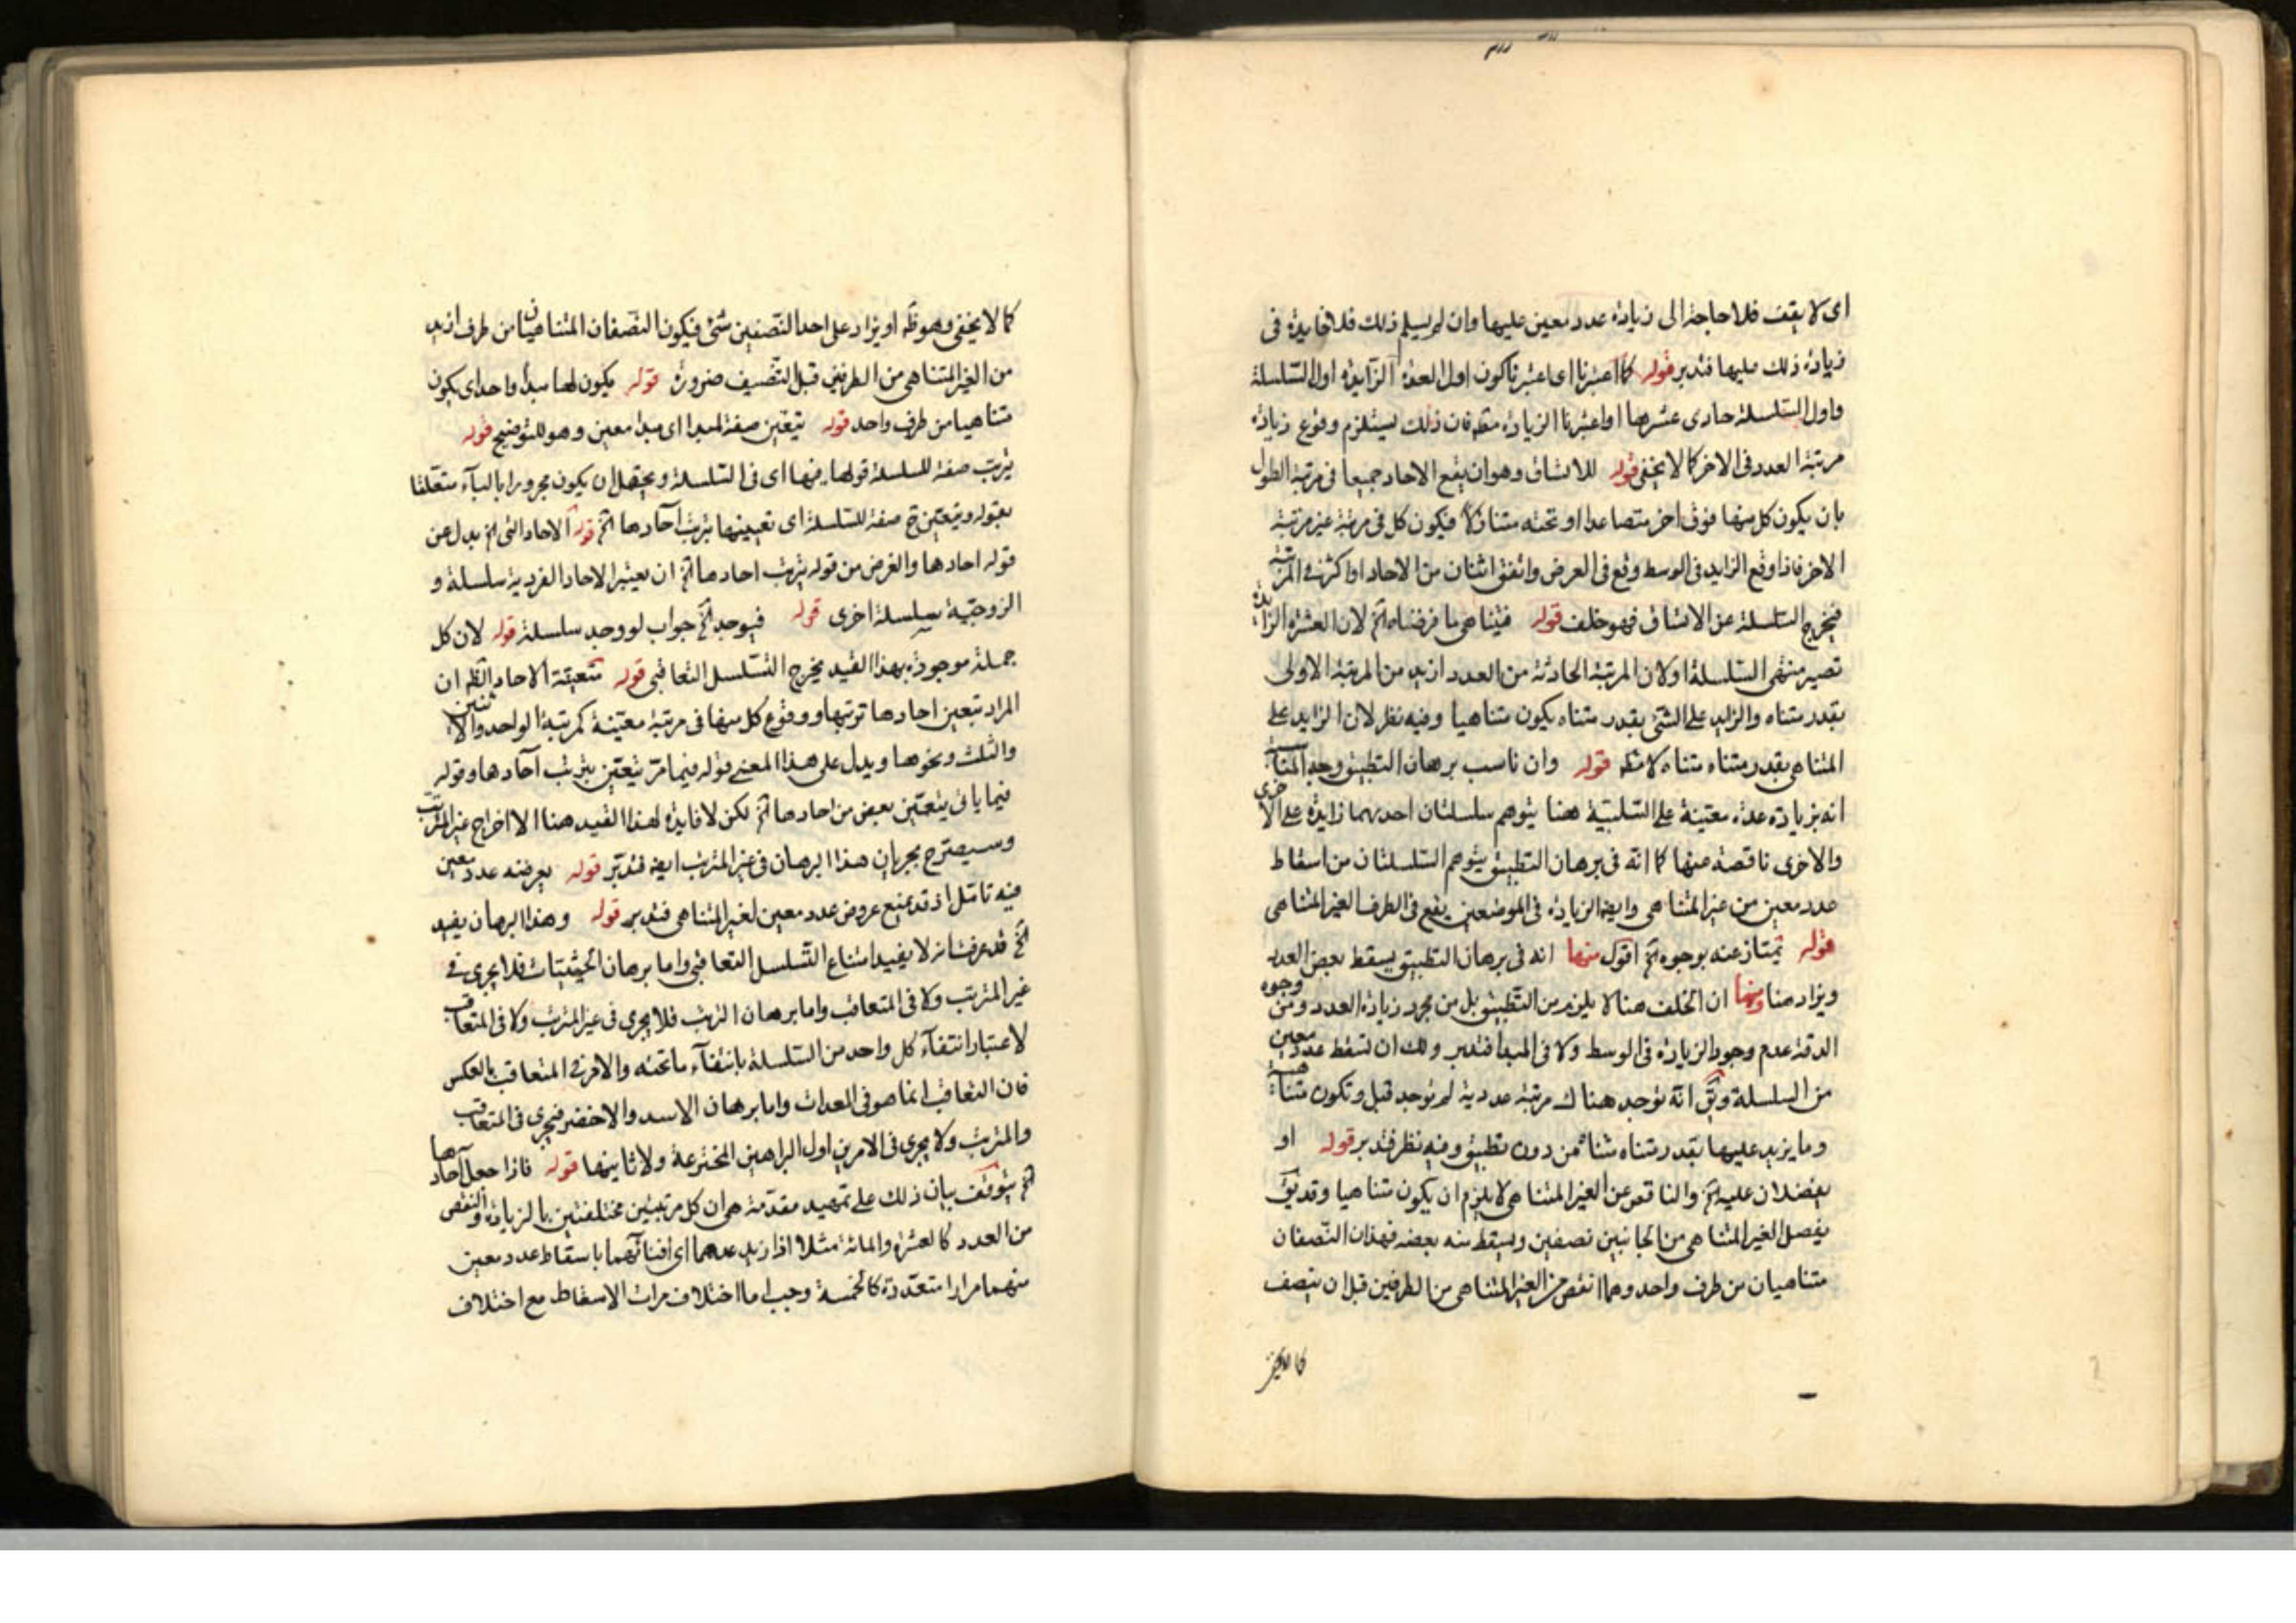 اى لا يقف فلا حاجة الى زيادة عدد معين عليها وان لم يسلم ذلك فلا فايدة فى
زيادة ذلك عليها فتدبر قوله كما اعتبرنا اى اعتبرنا كون اول العدة الزايدة اول السلسلة
واول السلسلة حادى عشرها او اعتبرنا الزيادة مط فان ذلك يستلزم وقوع زيادة
مرتبة العدد فى الاخر كما لا يخفى قوله للاتساق وهو ان يقع الاحاد جميعا فى مرتبة الطول
بان يكون كل منها فوق اخر متصاعدا او تحته متنازلا فيكون كل فى مرتبة غير مرتبة
الاخر فاذا وقع الزايد فى الوسط وقع فى العرض واتفق اثنان من الاحاد او اكثر فى المرتبة
فيخرج السلسلة عن الاتساق فهو خلف قوله فيتناهى ما فرضناه الخ لان العشرة الزايدة
تصير منتهى السلسلة او لان المرتبة الحادثة من العدد ازيد من المرتبة الاولى
بقدر متناه والزايد على الشئ بقدر متناه يكون متناهيا وفيه نظر لان الزايد على
المتناهى بقدر متناه متناه لا مط قوله وان ناسب برهان التطبيق وجه المناسبة
انه بزيادة عدة معينة على السلسلة هنا يتوهم سلسلتان احديهما زايدة على الاخرى
والاخرى ناقصة عنها كما انه فى برهان التطبيق يتوهم السلسلتان من اسقاط
عدد معين من غير المتناهى وايضا الزيادة فى الموضعين يقع فى الطرف الغير المتناهى
قوله تمتاز عنه بوجوه الخ اقول منها انه فى برهان التطبيق يسقط بعض العدد
ويزاد هنا ومنها ان الخلف هنا لا يلزم من التطبيق بل من مجرد زيادة العدد ومن وجوه
الدقة عدم وجود الزيادة فى الوسط ولا فى المبدا فتدبر ولك ان تسقط عدد معين
من السلسلة وتق انه توجد هناك مرتبة عددية لم توجد قبل وتكون متناهية
وما يزيد عليها بقدر متناه متناه من دون تطبيق وفيه نظر فتدبر قوله او
يفضلان عليه الخ والناقص عن الغير المتناهى لا يلزم ان يكون متناهيا وقد يق
يفصل الغير المتناهى من الجانبين نصفين ويسقط منه بعضه فهذان النصفان
متناهيان من طرف واحد وهما انقص من الغير المتناهى من الطرفين قبل ان ينصف
كما لا يخفى
كما لا يخفى وهو ظ او يزاد على احد النصفين شئ فيكون النصفان المتناهيان من طرف ازيد
من الغير المتناهى من الطرفين قبل التنصيف ضرورة قوله يكون لها مبدأ واحد اى يكون
متناهيا من طرف واحد قوله يتعين صفة المبدا اى مبدا معين وهو للتوضيح قوله
يترتب صفة للسلسلة قولها منها اى فى السلسلة ويحتمل ان يكون مجرورا بالباء متعلقا
بقوله ويتعين ح صفة للسلسلة اى تعيينها بترتب آحادها الخ قوله الاحاد التى الخ بدل عن
قوله احادها والغرض من قوله يترتب احادها الخ ان يعتبر الاحاد الفردية سلسلة و
الزوجية سلسلة اخرى قوله فيوجد الخ جواب لو وجد سلسلة قوله لان كل
جملة موجودة بهذا القيد يخرج التسلسل التعاقبى قوله متعينة الاحاد الظ ان
المراد بتعين احادها ترتبها ووقوع كل منها فى مرتبة معينة كمرتبة الواحد والاثنين
والثلث ونحوها ويدل على هذا المعنى قوله فيما مر يتعين بترتب آحادها وقوله
فيما ياتى يتعين بعض من احادها الخ لكن لا فايدة لهذا القيد هنا الا اخراج غير المترتب
وسيصرح بجريان هذا البرهان فى غير المترتب ايض فتدبر قوله يعرضه عدد معين
فيه تامل اذ قد يمنع عروض عدد معين لغير المتناهى فتدبر قوله وهذا البرهان يفيد
الخ قد عرفت انه لا يفيد امتناع التسلسل التعاقبى واما برهان الحيثيات فلا يجرى فى
غير المترتب ولا فى المتعاقب واما برهان الترتب فلا يجرى فى غير المترتب ولا فى المتعاقب
لاعتبار انتفاء كل واحد من السلسلة بانتفاء ما تحته والامر فى المتعاقب بالعكس
فان التعاقب انما هو فى المعدات واما برهان الاسد والاخصر فيجرى فى المتعاقب
والمترتب ولا يجرى فى الامرين اول البراهين المخترعة ولا ثانيها قوله فاذا جعل آحادها
الخ يتوقف بيان ذلك على تمهيد مقدمة هى ان كل مرتبتين مختلفتين بالزيادة والنقص
من العدد كالعشرة والمائة مثلا اذا اريد عدهما اى افنائهما باسقاط عدد معين
منهما مرارا متعددة كالخمسة وجب اما اختلاف مرات الاسقاط مع اختلاف